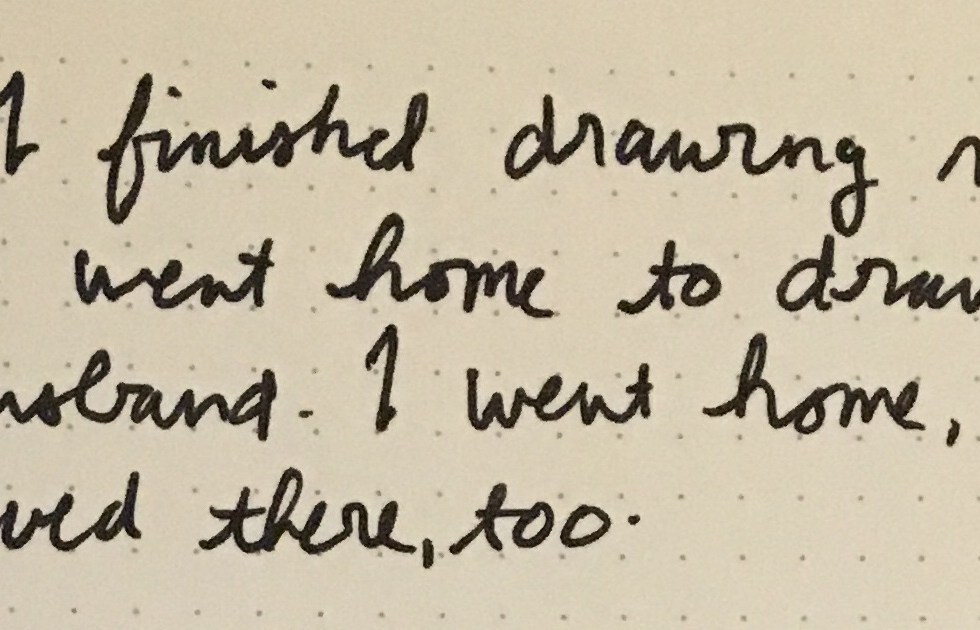 I finished drawing
went home to draw
husband. I went home,
ved there, too.